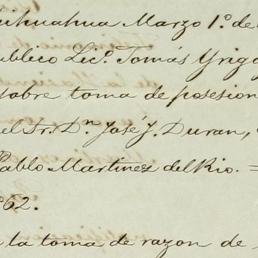 Chihuahua Marzo 1º. de
ublico Licº. Tomás Yrigo
sobre toma de posesion
el Sr. Dn. José J. Duran,
Pablo Martinez del Rio. =
62.
la toma de razon de